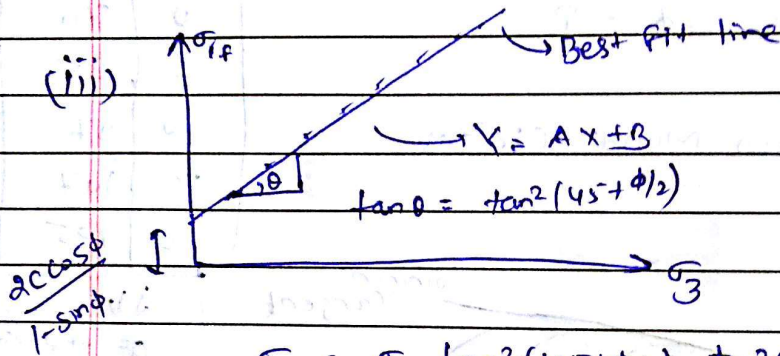 (iii)
σ₁f
Best fit line
Y = AX + B
θ
tan θ = tan²(45 + φ/2)
2c cosφ / 1 - sinφ
σ3